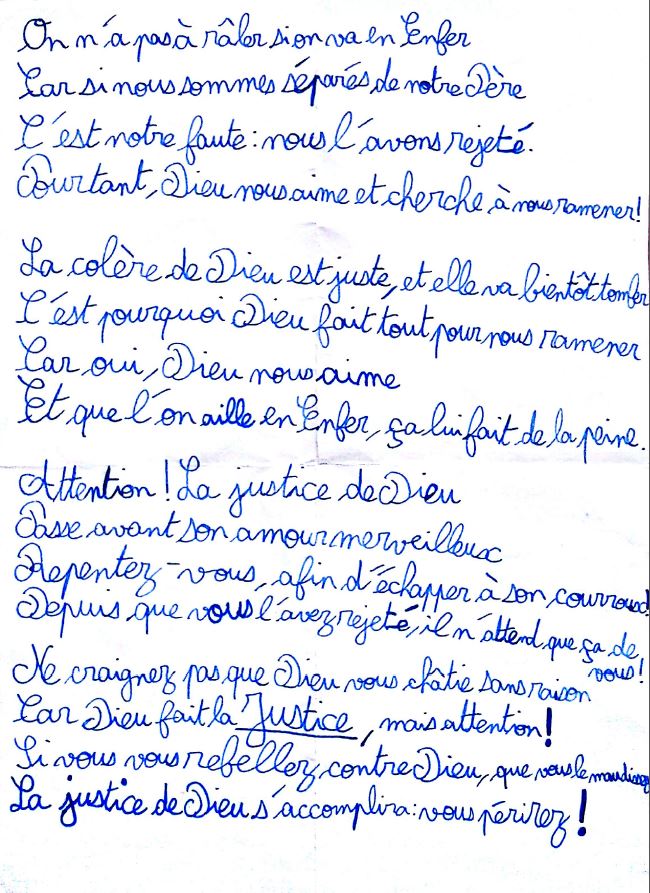 On n'a pas à râler si on va en Enfer
Car si nous sommes séparés de notre Père
C'est notre faute : nous l'avons rejeté.
Pourtant, Dieu nous aime et cherche à nous ramener !
La colère de Dieu est juste, et elle va bientôt tomber
C'est pourquoi Dieu fait tout pour nous ramener
Car oui, Dieu nous aime
Et que l'on aille en Enfer, ça lui fait de la peine.
Attention ! La justice de Dieu
Passe avant son amour merveilleux
Repentez-vous, afin d'échapper à son courroux !
Depuis que vous l'avez rejeté, il n'attend que ça de
vous !
Ne craignez pas que Dieu vous châtie sans raison
Car Dieu fait la Justice, mais attention !
Si vous vous rebellez contre Dieu, que vous le maudissez
La justice de Dieu s'accomplira : vous périrez !